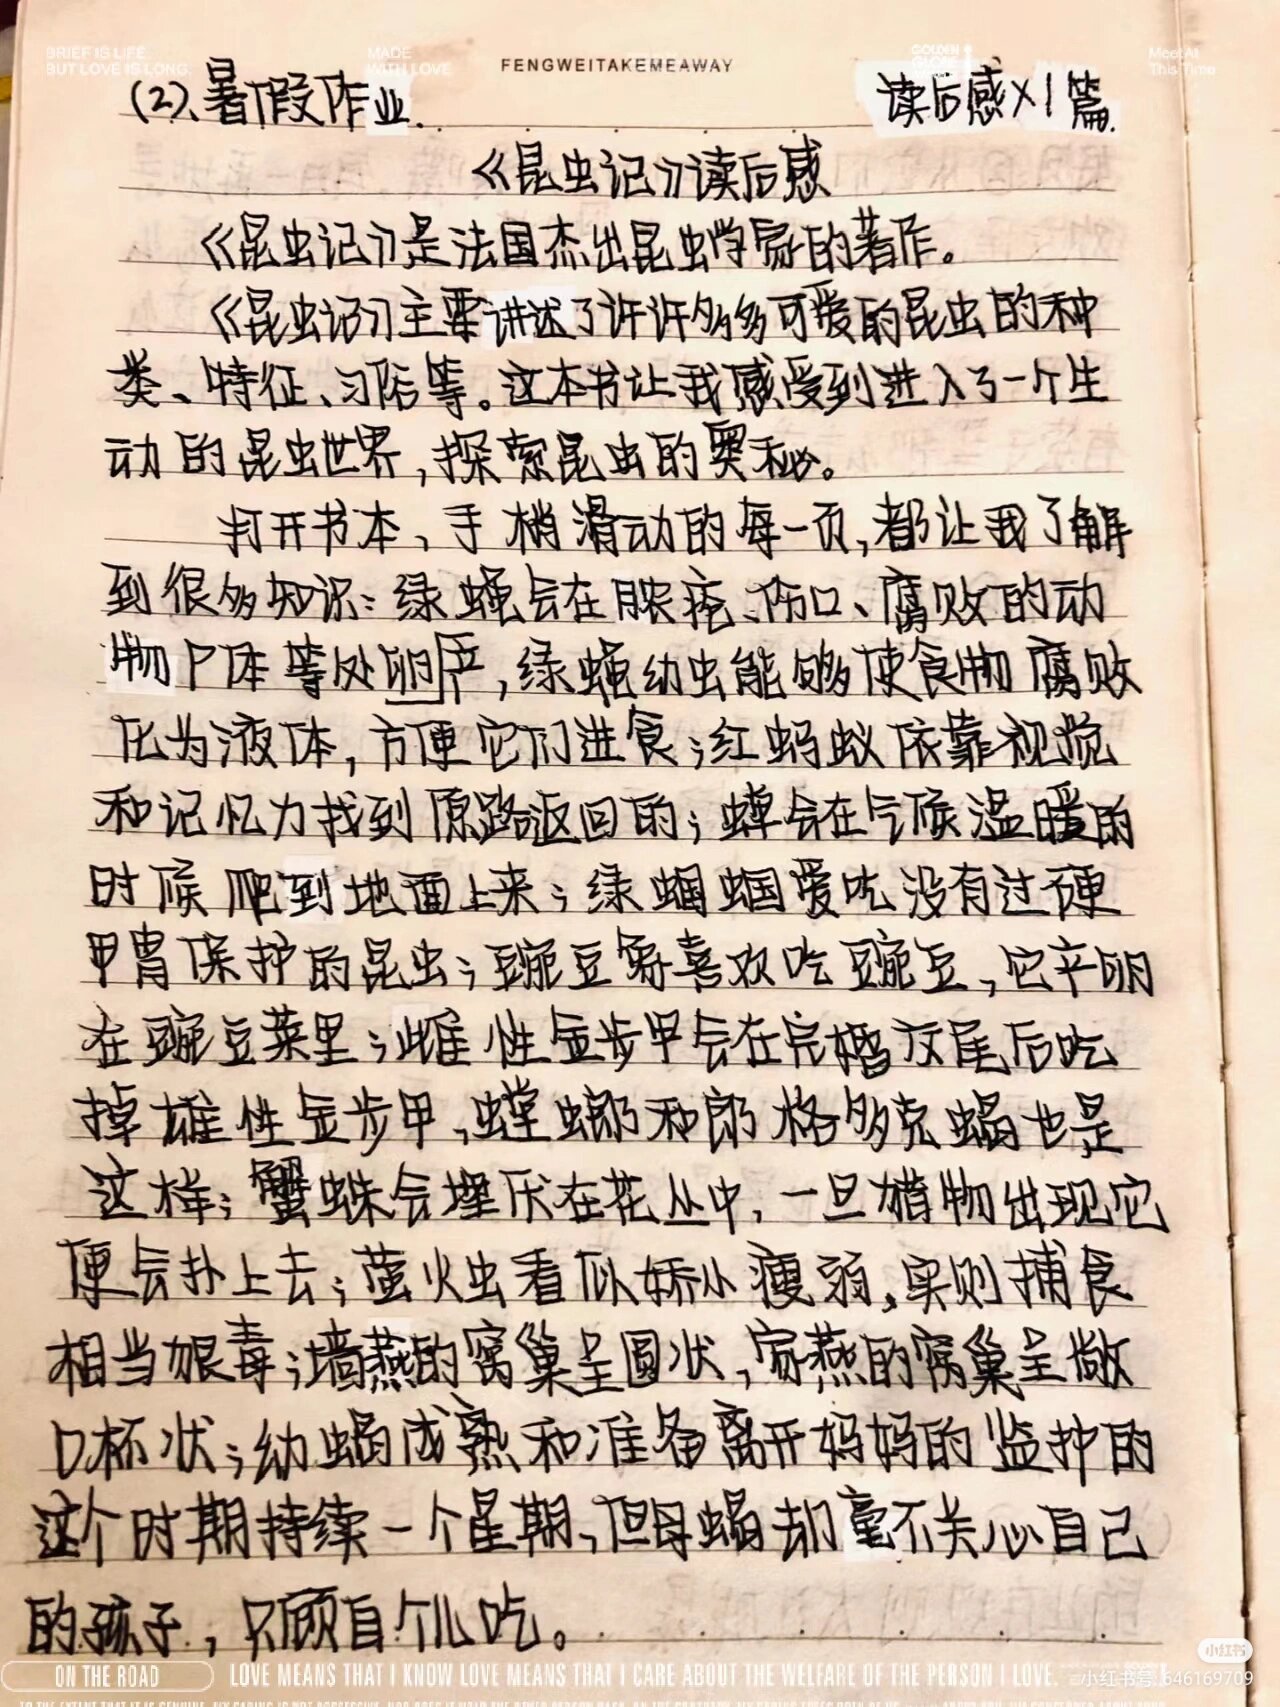 BRIEF IS LIFE
BUT LOVE IS LONG.
MADE
WITH LOVE
FENGWEITAKEMEAWAY
GOLDEN
GLOBE
Meet At
This Time
(2)、暑假作业.
读后感×1篇.
《昆虫记》读后感
《昆虫记》是法国杰出昆虫学家的著作。
《昆虫记》主要讲述了许许多多可爱的昆虫的种
类、特征、习俗等。这本书让我感受到进入了一个生
动的昆虫世界,探索昆虫的奥秘。
打开书本、手梢滑动的每一页,都让我了解
到很多知识:绿蝇会在脓疮、伤口、腐败的动
物尸体等处卵产,绿蝇幼虫能够使食物腐败
化为液体,方便它们进食;红蚂蚁依靠视觉
和记忆力找到原路返回的;蝉会在气候温暖的
时候爬到地面上来;绿蝈蝈爱吃没有过硬
甲胄保护的昆虫;豌豆象喜欢吃豌豆,它产卵
在豌豆荚里;雌性金步甲会在完婚交尾后吃
掉雄性金步甲,螳螂和郎格多克蝎也是
这样;蟹蛛会埋伏在花丛中,一旦猎物出现它
便会扑上去;萤火虫看似娇小瘦弱,实则捕食
相当狠毒;墙燕的窝巢呈圆状,家燕的窝巢呈敞
口杯状;幼蝎成熟和准备离开妈妈的监护的
这个时期持续一个星期、但母蝎却毫不关心自己
的孩子,只顾自个儿吃。
ON THE ROAD
LOVE MEANS THAT I KNOW LOVE MEANS THAT I CARE ABOUT THE WELFARE OF THE PERSON I LOVE.
小红书
小红书号:646169709